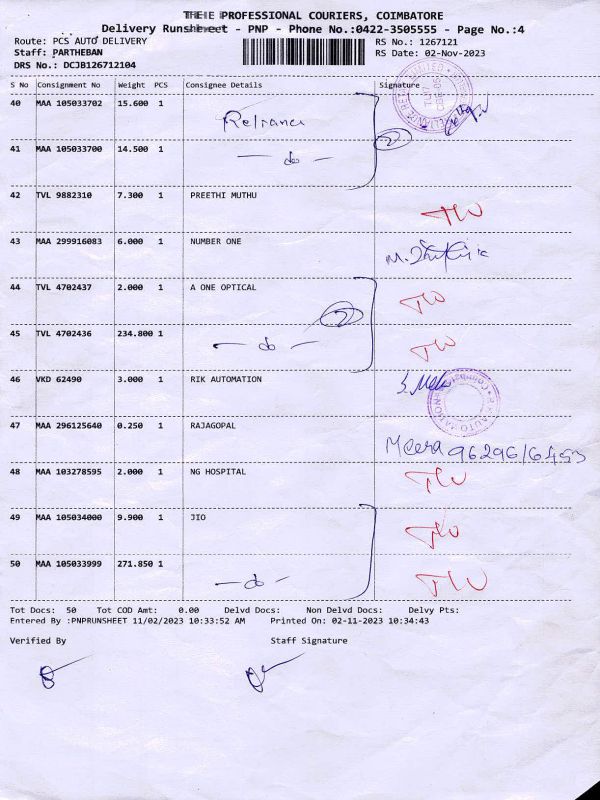 THE PROFESSIONAL COURIERS, COIMBATORE
Delivery Runsheet - PNP - Phone No.:0422-3505555 - Page No.:4
Route: PCS AUTO DELIVERY RS No.: 1267121
Staff: PARTHEBAN RS Date: 02-Nov-2023
DRS No.: DCJB126712104
S No Consignment No Weight PCS Consignee Details Signature
40 MAA 105033702 15.600 1
41 MAA 105033700 14.500 1 — do —
42 TVL 9882310 7.300 1 PREETHI MUTHU
43 MAA 299916083 6.000 1 NUMBER ONE
44 TVL 4702437 2.000 1 A ONE OPTICAL
45 TVL 4702436 234.800 1 — do —
46 VKD 62490 3.000 1 RIK AUTOMATION
47 MAA 296125640 0.250 1 RAJAGOPAL Meera
48 MAA 103278595 2.000 1 NG HOSPITAL
49 MAA 105034000 9.900 1 JIO
50 MAA 105033999 271.850 1 — do —
Tot Docs: 50 Tot COD Amt: 0.00 Delvd Docs: Non Delvd Docs: Delvy Pts:
Entered By :PNPRUNSHEET 11/02/2023 10:33:52 AM Printed On: 02-11-2023 10:34:43
Verified By Staff Signature